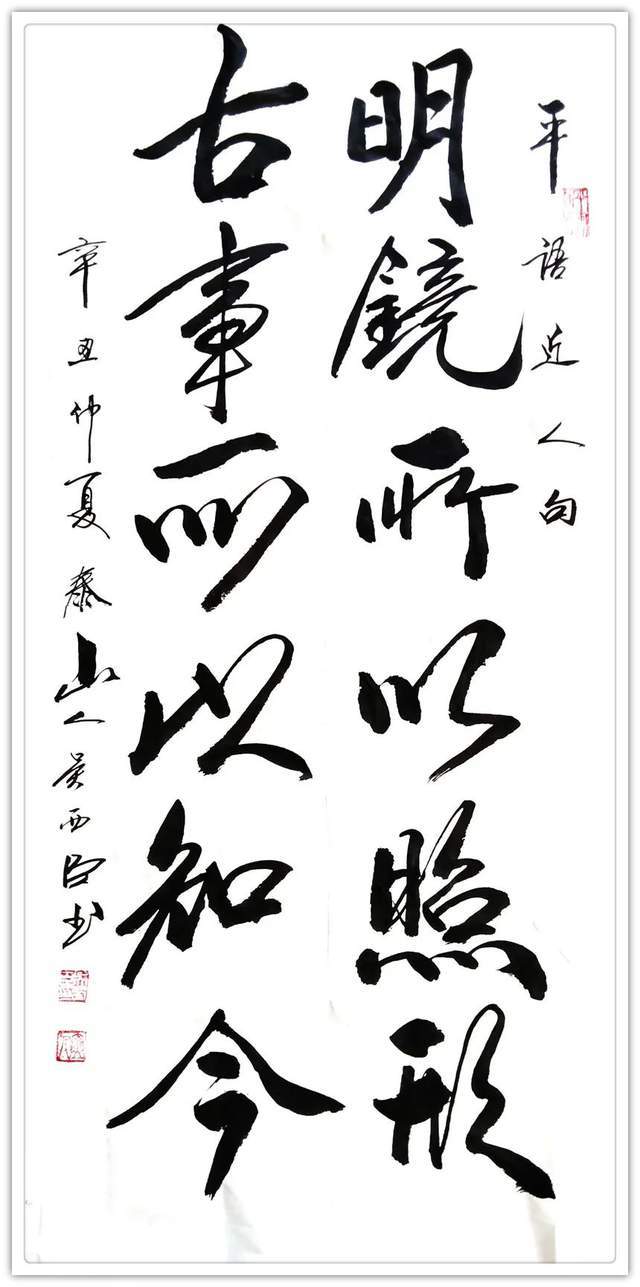 平语近人句
明镜所以照形
古事所以知今
辛丑仲夏泰山人吴西臣书